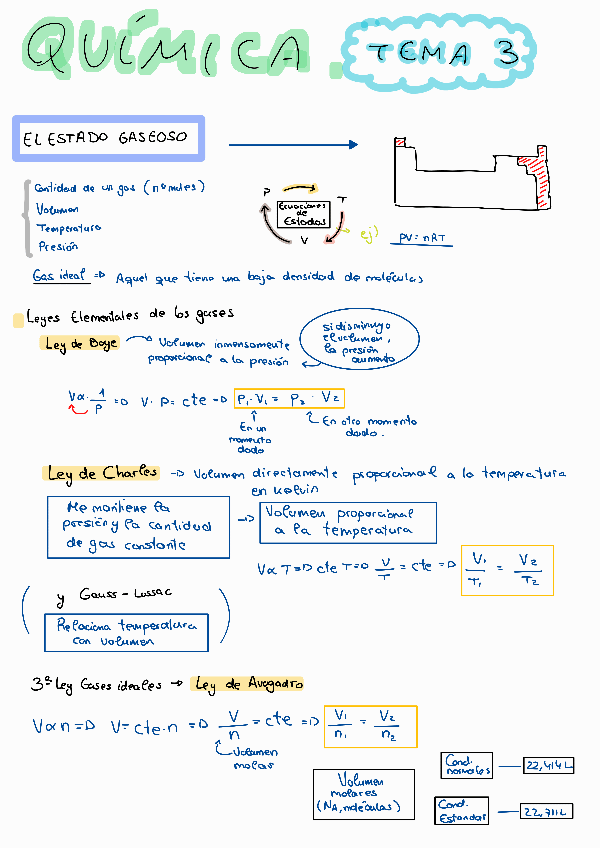 QUÍMICA. TEMA 3
EL ESTADO GASEOSO
Cantidad de un gas (nº moles)
Volumen
Temperatura
Presión
P T V
Ecuaciones
de
Estados
ej) PV = nRT
Gas ideal => Aquel que tiene una baja densidad de moléculas
Leyes Elementales de los gases
Ley de Boye → Volumen inmensamente
proporcional a la presión
si disminuyo
el volumen,
la presión
aumenta
V∝ 1/P => V · P = cte => P₁ · V₁ = P₂ · V₂
En un
momento
dado
En otro momento
dado.
Ley de Charles → Volumen directamente proporcional a la temperatura
en kelvin
Me mantiene la
presión y la cantidad
de gas constante
→ Volumen proporcional
a la temperatura
V∝T => cte T => V/T = cte => V₁/T₁ = V₂/T₂
y Gauss-Lussac
Relaciona temperatura
con volumen
3ª Ley Gases ideales → Ley de Avogadro
V∝n => V = cte·n => V/n = cte => V₁/n₁ = V₂/n₂
Volumen
molar
Volumen
molares
(NA, moléculas)
Cond.
normales — 22,414L
Cond.
Estandar — 22,711L